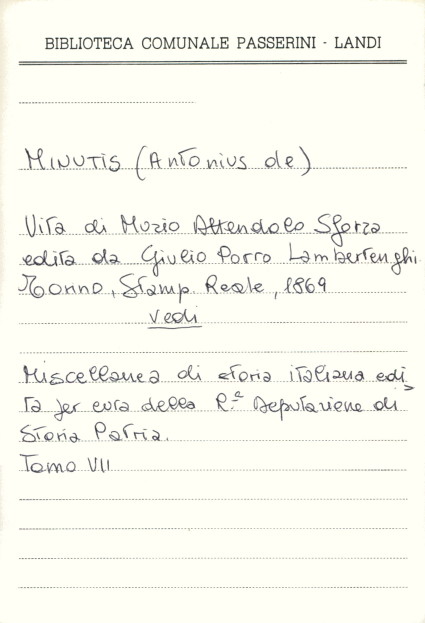 BIBLIOTECA COMUNALE PASSERINI - LANDI
MINUTIS (Antonius de)
Vita di Muzio Attendolo Sforza
edita da Giulio Porro Lambertenghi
Torino, Stamp. Reale, 1869
vedi
Miscellanea di storia italiana edi
ta per cura della R.ª Deputazione di
Storia Patria.
Tomo VII